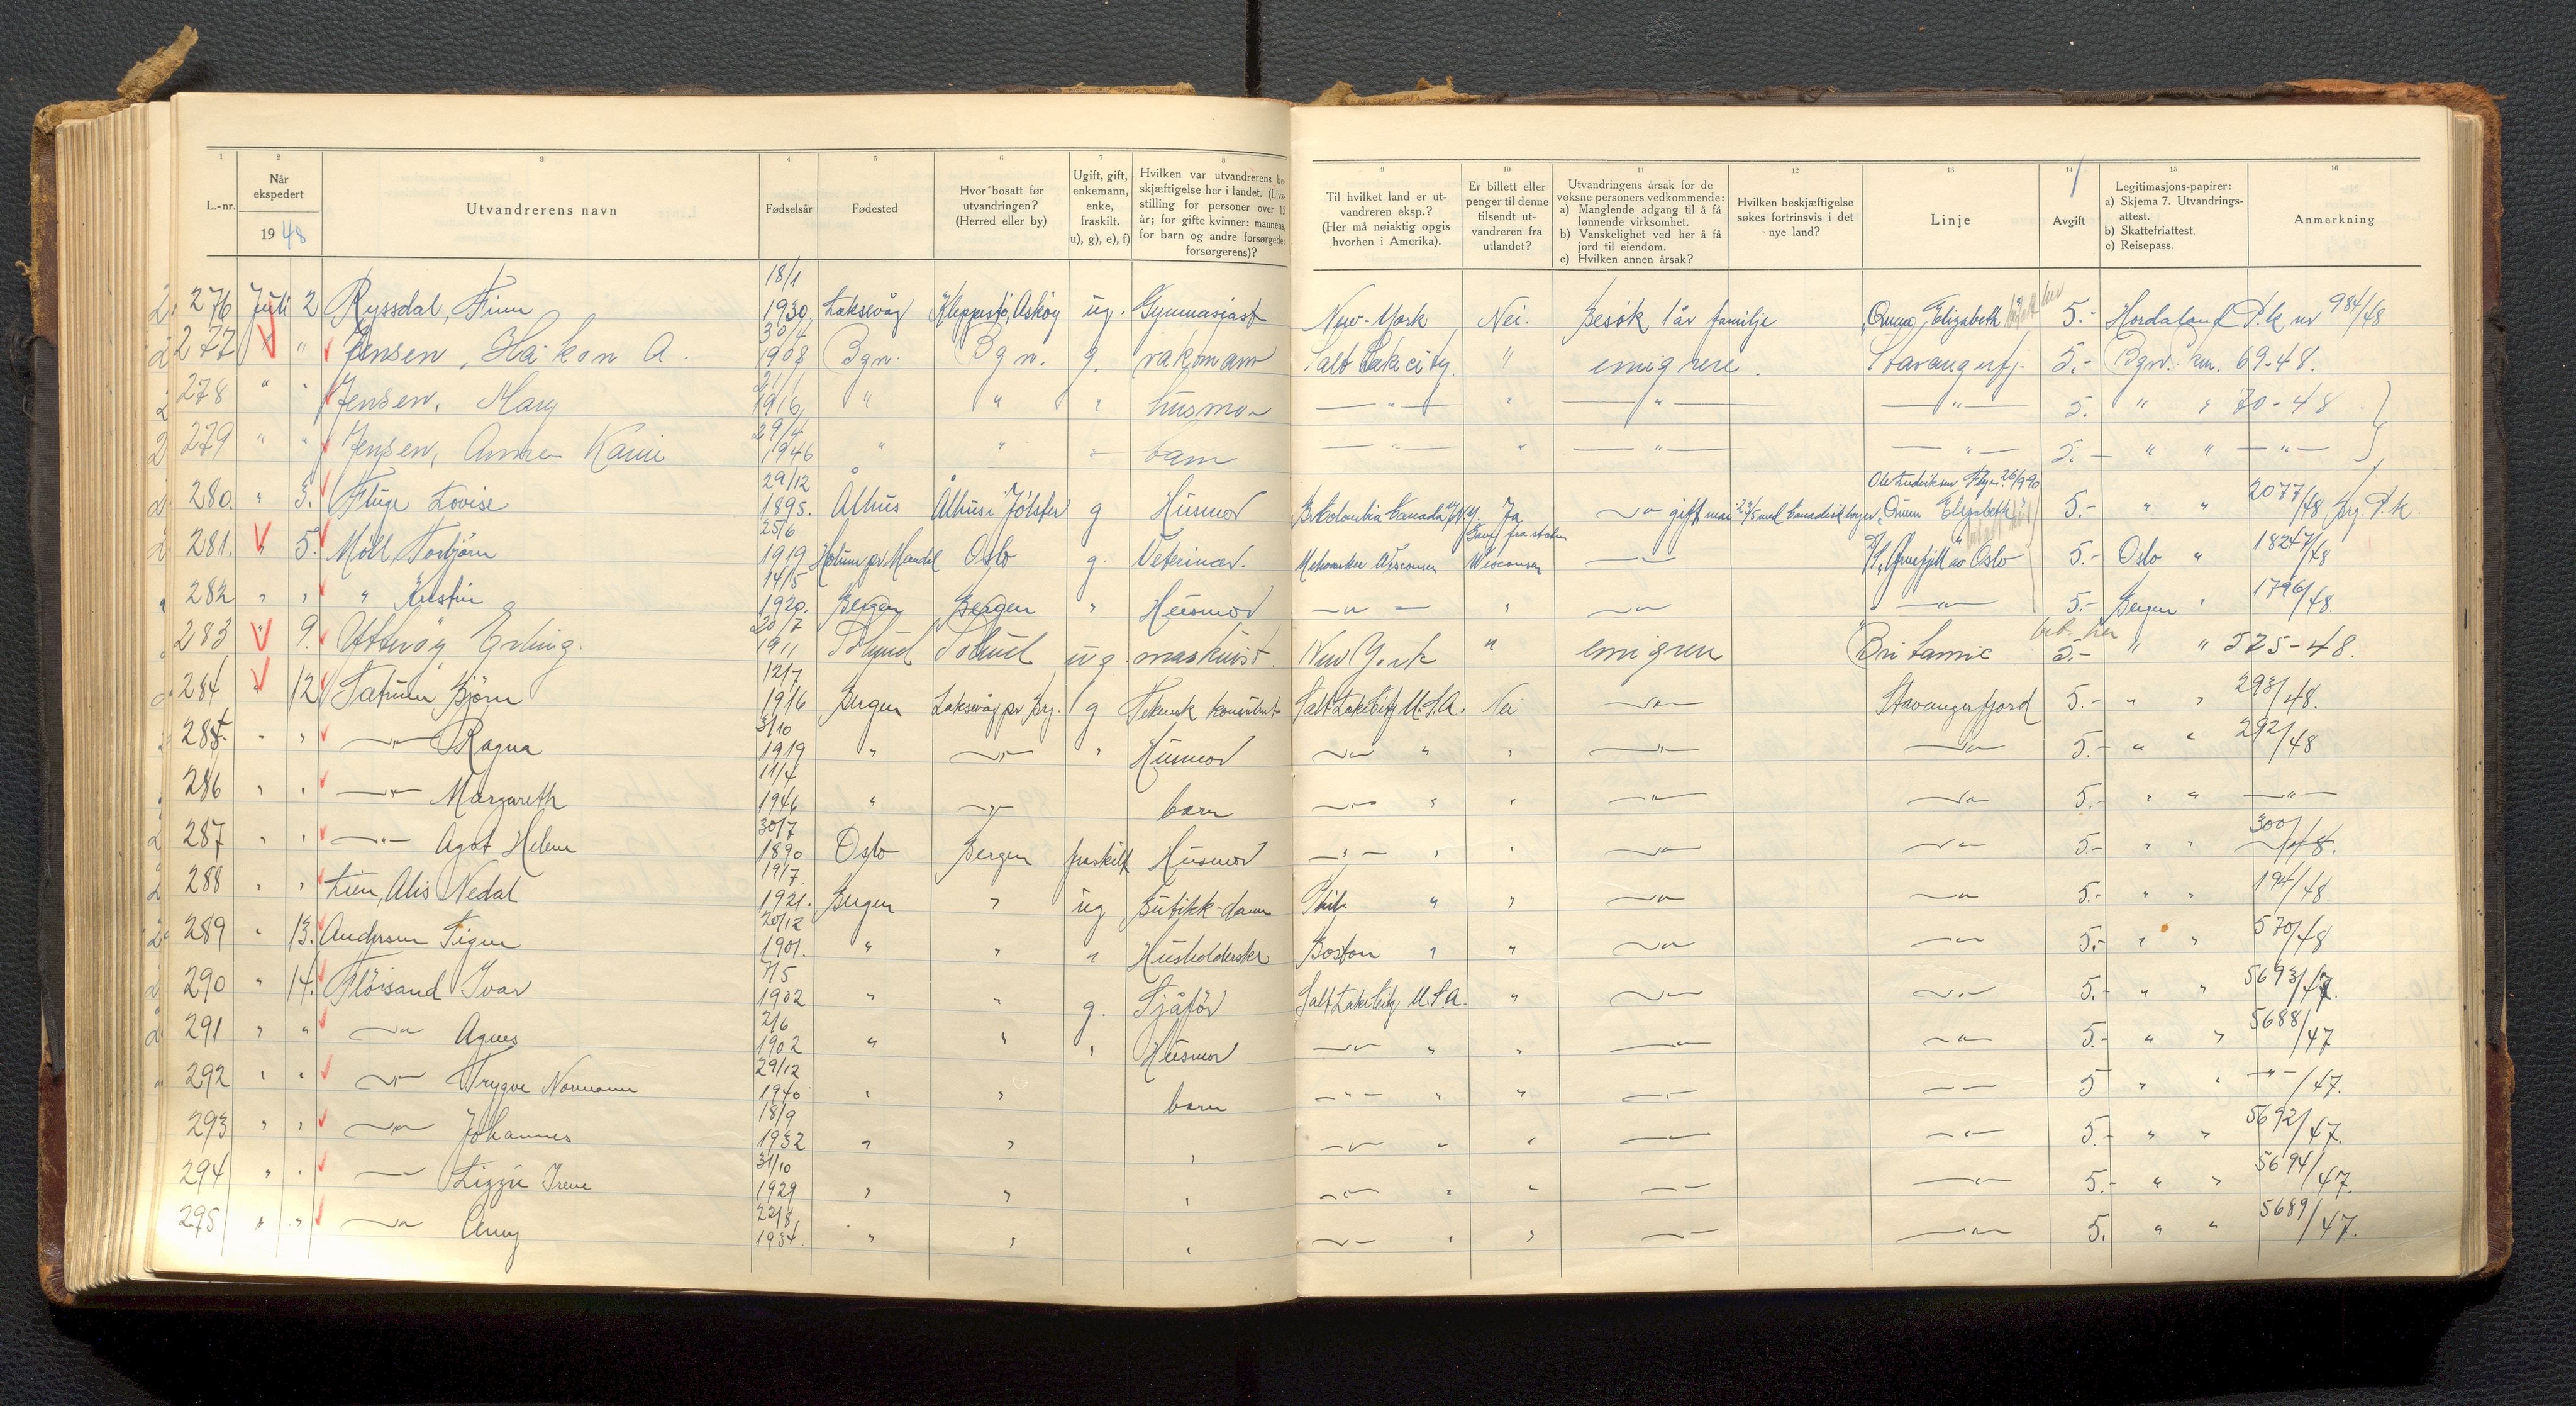 1 2 3 4 5 6 7 8 9 10 11 12 13 14 15 16
L.-nr.
Når ekspedert
1948
Utvandrerens navn
Fødselsår
Fødested
Hvor bosatt før utvandringen? (Herred eller by)
Ugift, gift, enkemann, enke, fraskilt. u), g), e), f)
Hvilken var utvandrerens beskjæftigelse her i landet. (Livsstilling for personer over 15 år; for gifte kvinner: mannens, for barn og andre forsørgede: forsørgerens)?
Til hvilket land er utvandreren eksp.? (Her må nøiaktig opgis hvorhen i Amerika).
Er billett eller penger til denne tilsendt utvandreren fra utlandet?
Utvandringens årsak for de voksne personers vedkommende:
a) Manglende adgang til å få lønnende virksomhet.
b) Vanskelighet ved her å få jord til eiendom.
c) Hvilken annen årsak?
Hvilken beskjæftigelse søkes fortrinsvis i det nye land?
Linje
Avgift
Legitimasjons-papirer:
a) Skjema 7. Utvandrings-attest.
b) Skattefriattest.
c) Reisepass.
Anmerkning
276 Juli 2 Ryssdal, Finn 18/1 1930 Laksevåg Kleppestø, Askøy ug. Gymnasiast New-York Nei. Besøk 1 år familje Queen Elizabeth 5.- Hordaland P.k nr 984/48
277 " " Jensen, Håkon A. 30/4 1908 Bgn. Bgn. g. vakmann Salt Lake city " emigrere. Stavangerfj. 5.- Bgn. km. 69-48.
278 " " Jensen, Mary 21/1 1916 " " " husmor — " — " — " — — " — 5. " " 70-48
279 " " Jensen, Anne Karin 29/4 1946 " " " barn — " — " — " — — " — 5.- " " — " —
280. " 3. Fluge Lovise 29/12 1895. Ålhus Ålhus i Jølster g Husmor Br Kolombia Canada Ja — " — gift mai 23/5 med Canadisk borger Queen Elizabeth 5.- " " 2077/48 Brg. P.k
281. " 5. Moll, Torbjørn 25/6 1919 Holum pr Mandal Oslo g. Veterinær. Wisconsin Wisconsin — " — Oslo 5.- Oslo " 18247/48
282 " " " Kirstin 14/5 1920. Bergen Bergen " Husmor — " — " — " — — " — 5.- Bergen " 1796/48.
283 " 9. Erling. 20/7 1911 Solund Solund ug. maskinist. New York " emigrere Britannic 5.- " " 525-48.
284 " 12 Sætrum Bjørn 12/7 1916 Bergen Laksevåg pr Brg. g Teknisk konsulent Salt Lake City U.S.A. Nei — " — Stavangerfjord 5.- " " 293/48.
285. " " — " — Ragna 3/10 1919 " — " — " Husmor — " — " " — " — — " — 5.- " " 292/48
286 " " — " — Margareth 11/4 1946 " — " — barn — " — " " — " — — " — 5.- " " — " —
287 " " — " — Agot Helene 30/7 1890 Oslo Bergen fraskilt Husmor — " — " " — " — — " — 5.- " " 300/48.
288 " " Lien, Alis Nedal 19/7. 1921. Bergen " ug Butikk-dame " " — " — — " — 5.- " " 194/48.
289 " 13. Andersen Signe 20/12 1901. " " " Husholderske Boston " " — " — — " — 5.- " " 570/48
290 " 14. Fløisand Ivar 7/5 1902 " " g. Sjåfør Salt Lake City U.S.A. " — " — — " — 5.- " " 5693/47.
291 " " — " — Agnes 2/6 1902 " " " Husmor — " — " " — " — — " — 5.- " " 5688/47
292 " " — " — Trygve Normann 29/12 1940 " " barn — " — " " — " — — " — 5 " " — " — /47.
293 " " — " — Johannes 18/9 1932 " " " — " — " " — " — — " — 5.- " " 5692/47.
294 " " — " — Lizzie Irene 31/10 1929 " " " — " — " " — " — — " — 5.- " " 5694/47.
295 " " — " — Anny 22/8 1934. " " " — " — " " — " — — " — 5. " " 5689/47.